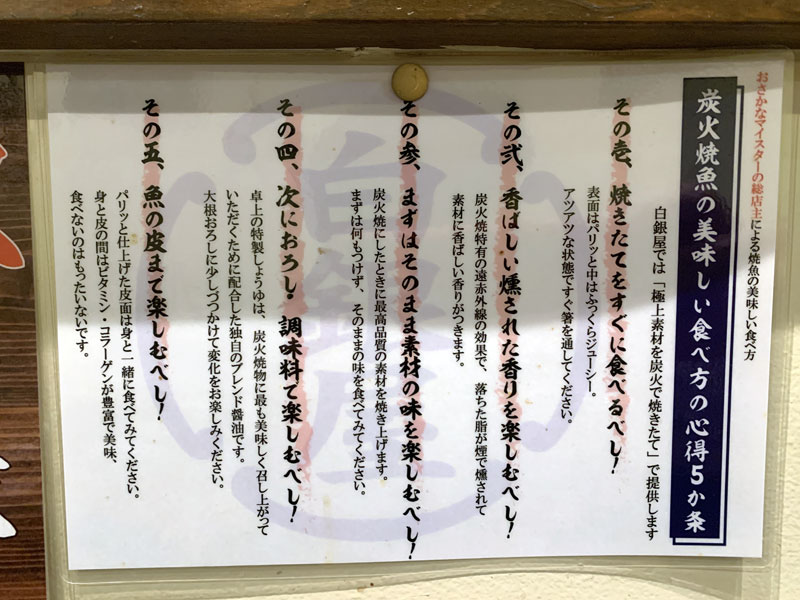 おさかなマイスターの総店主による焼魚の美味しい食べ方
炭火焼魚の美味しい食べ方の心得5か条
白銀屋では「極上素材を炭火で焼きたて」で提供します
その壱、焼きたてをすぐに食べるべし！
表面はパリッと中はふっくらジューシー。
アツアツな状態ですぐ箸を通してください。
その弐、香ばしい燻された香りを楽しむべし！
炭火焼特有の遠赤外線の効果で、落ちた脂が煙で燻されて
素材に香ばしい香りがつきます。
その参、まずはそのまま素材の味を楽しむべし！
炭火焼にしたときに最高品質の素材を焼き上げます。
まずは何もつけず、そのままの味を食べてみてください。
その四、次におろし・調味料で楽しむべし！
卓上の特製しょうゆは、炭火焼物に最も美味しく召し上がって
いただくために配合した独自のブレンド醤油です。
大根おろしに少しづつかけて変化をお楽しみください。
その五、魚の皮まで楽しむべし！
パリッと仕上げた皮面は身と一緒に食べてみてください。
身と皮の間はビタミン・コラーゲンが豊富で美味、
食べないのはもったいないです。
白銀屋